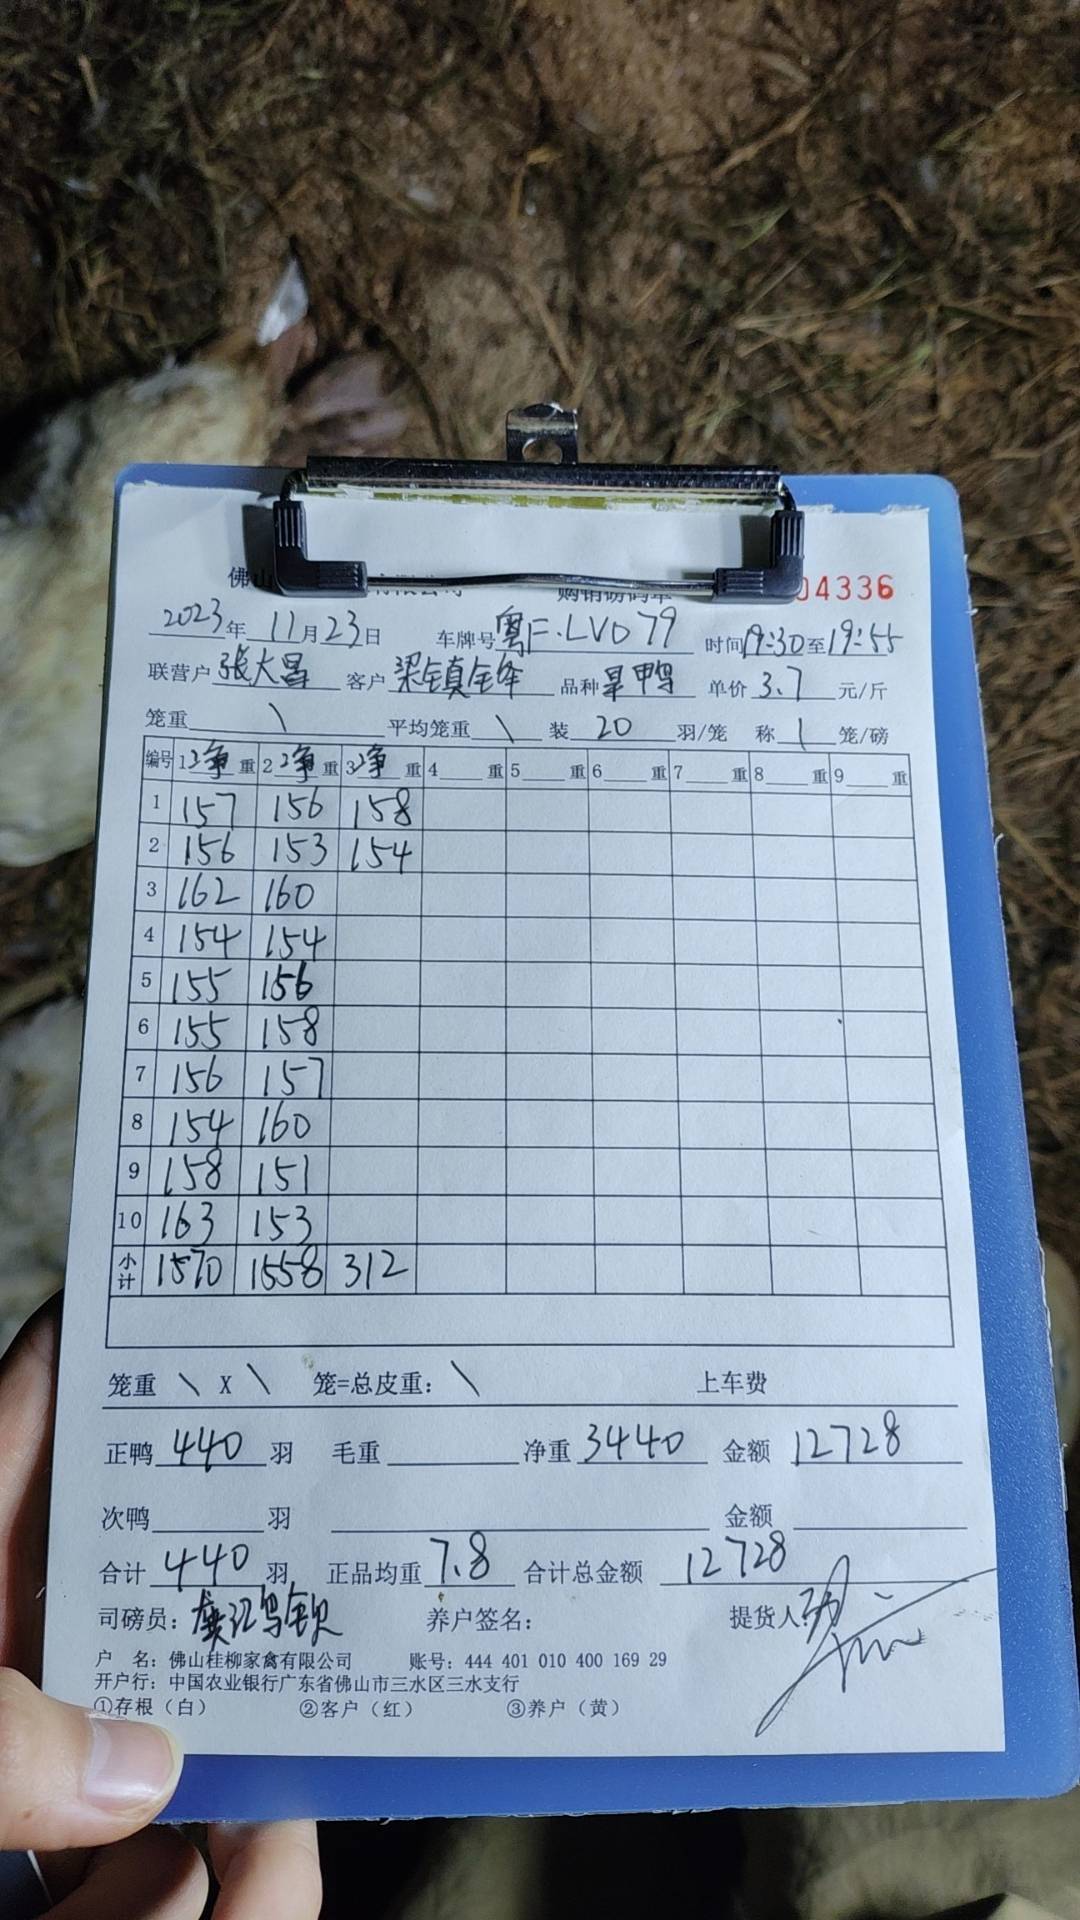 佛山
04336
2023年 11月23日 车牌号粤F·LVD79 时间19:30至19:55
联营户张大昌 客户梁镇锋 品种旱鸭 单价3.7元/斤
笼重\ 平均笼重\ 装20羽/笼 称1笼/磅
编号 1净重 2净重 3净重 4重 5重 6重 7重 8重 9重
1 157 156 158
2 156 153 154
3 162 160
4 154 154
5 155 156
6 155 158
7 156 157
8 154 160
9 158 151
10 163 153
小计 1570 1558 312
笼重 \ X \ 笼=总皮重：\ 上车费
正鸭440羽 毛重 净重3440 金额12728
次鸭 羽 金额
合计440羽 正品均重7.8 合计总金额12728
司磅员： 养户签名： 提货人:
户 名：佛山桂柳家禽有限公司 账号：444 401 010 400 169 29
开户行：中国农业银行广东省佛山市三水区三水支行
①存根（白） ②客户（红） ③养户（黄）